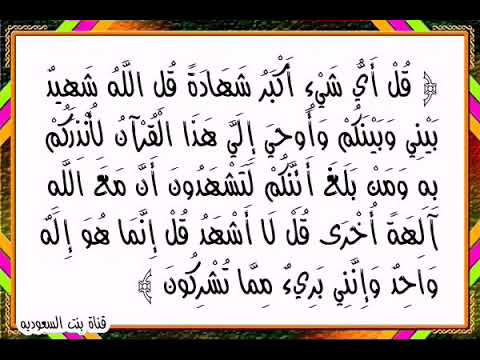 ﴿ قُلْ أَيُّ شَيْءٍ أَكْبَرُ شَهَادَةً قُلِ اللَّهُ شَهِيدٌ
بَيْنِي وَبَيْنَكُمْ وَأُوحِيَ إِلَيَّ هَذَا الْقُرْآنُ لِأُنْذِرَكُمْ
بِهِ وَمَنْ بَلَغَ أَئِنَّكُمْ لَتَشْهَدُونَ أَنَّ مَعَ اللَّهِ
آلِهَةً أُخْرَى قُلْ لَا أَشْهَدُ قُلْ إِنَّمَا هُوَ إِلَهٌ
وَاحِدٌ وَإِنَّنِي بَرِيءٌ مِمَّا تُشْرِكُونَ ﴾
قناة بنت السعوديه